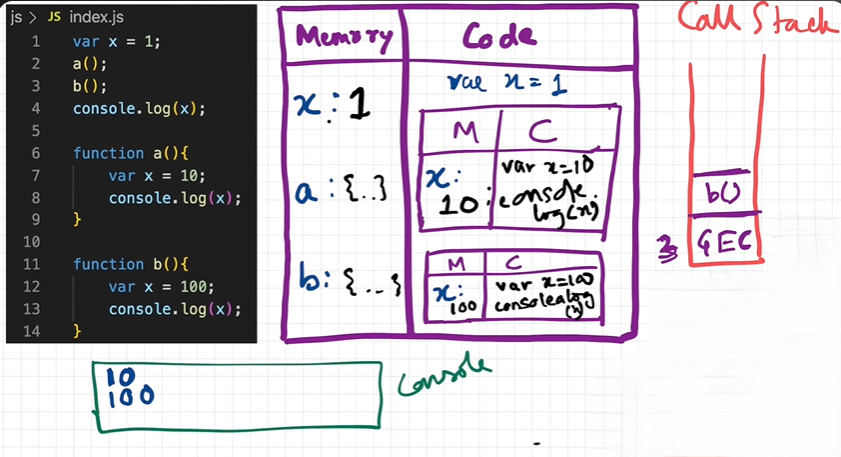 js > JS index.js
1 var x = 1;
2 a();
3 b();
4 console.log(x);
5
6 function a(){
7 var x = 10;
8 console.log(x);
9 }
10
11 function b(){
12 var x = 100;
13 console.log(x);
14 }
Memory
Code
x : 1
a : {..}
b : {...}
var x = 1
M C
x: 10
var x=10
console.
log(x)
M C
x: 100
var x=100
console.log
(x)
Call Stack
b()
GEC
3
10
100
Console